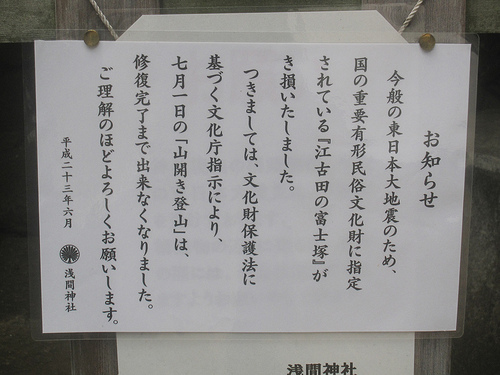 お知らせ
今般の東日本大地震のため、
国の重要有形民俗文化財に指定
されている『江古田の富士塚』が
き損いたしました。
つきましては、文化財保護法に
基づく文化庁指示により、
七月一日の「山開き登山」は、
修復完了まで出来なくなりました。
ご理解のほどよろしくお願いします。
平成二十三年六月
浅間神社
浅間神社